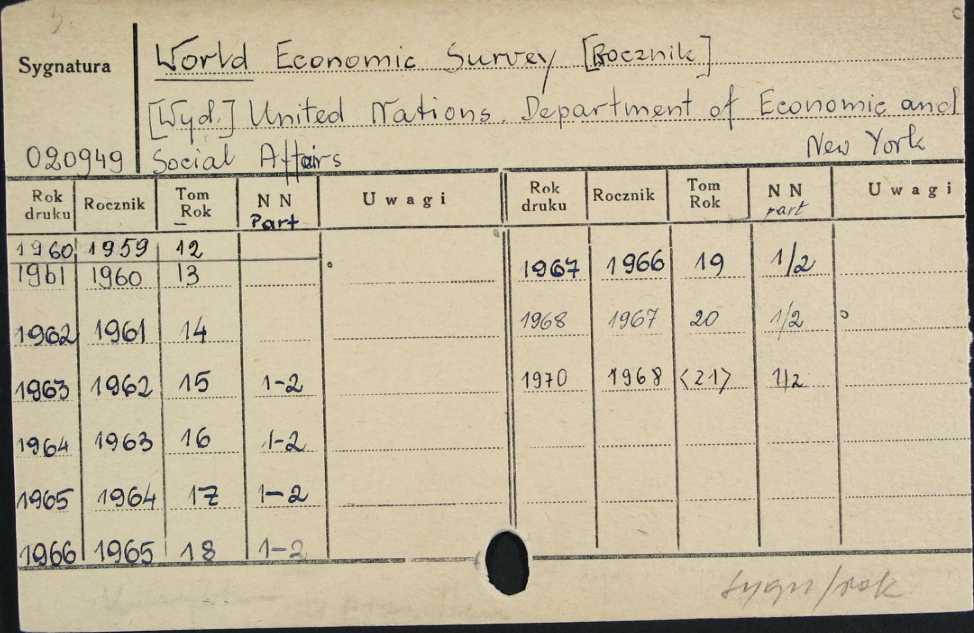 Sygnatura
World Economic Survey [Rocznik]
[Wyd.] United Nations. Department of Economic and
020949 Social Affairs New York
Rok druku Rocznik Tom Rok N N Part Uwagi Rok druku Rocznik Tom Rok N N part Uwagi
1960 1959 12
1961 1960 13
1967 1966 19 1/2
1962 1961 14
1968 1967 20 1/2
1963 1962 15 1-2
1970 1968 <21> 1/2
1964 1963 16 1-2
1965 1964 17 1-2
1966 1965 18 1-2
sygn/rok